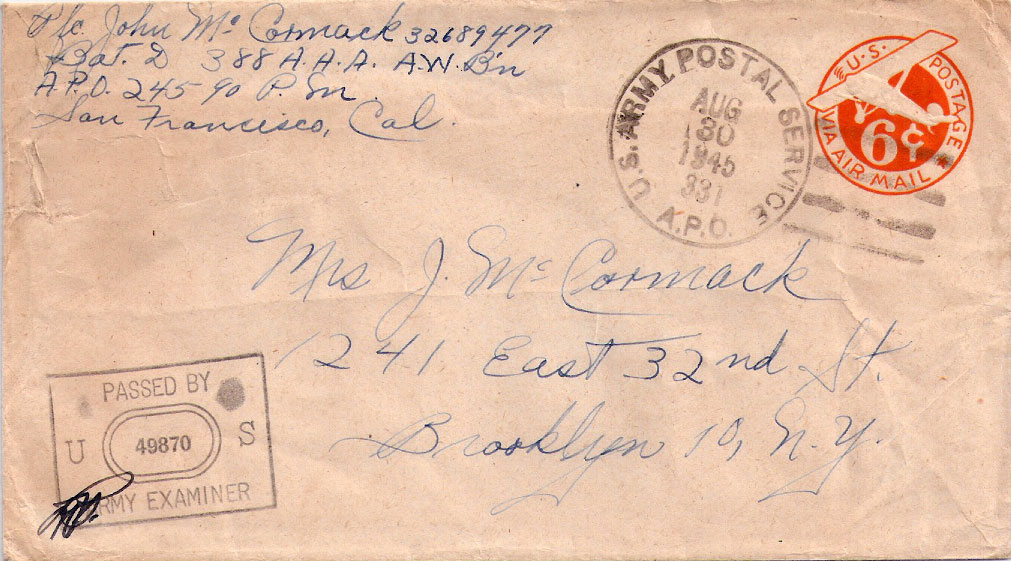 Pfc. John Mc Cormack 32689477
Bat. D 388 A.A.A. A.W. B'n
A.P.O. 245 - 90 P.M.
San Francisco, Cal.
U.S. ARMY POSTAL SERVICE
AUG
30
1945
331
A.P.O.
U.S. POSTAGE
6¢
VIA AIR MAIL
Mrs J. Mc Cormack
1241 East 32nd St.
Brooklyn 10, N.Y.
PASSED BY
U 49870 S
ARMY EXAMINER